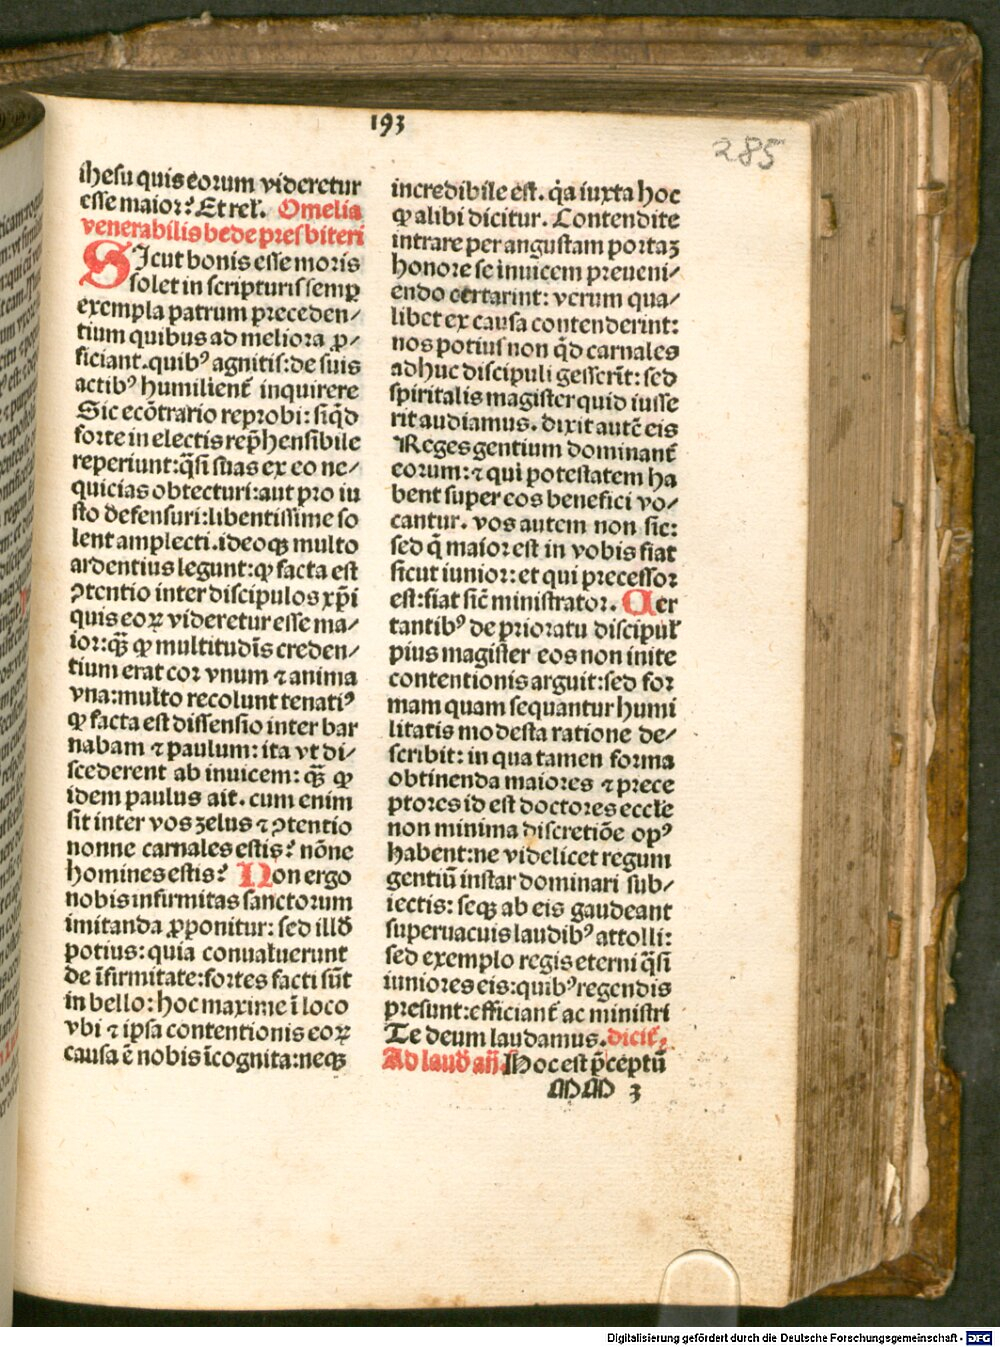 193
285
ihesu quis eorum videretur
esse maior? Et rel'. Omelia
venerabilis bede presbiteri
SIcut bonis esse moris
solet in scripturis semꝑ
exempla patrum preceden⸗
tium quibus ad meliora ꝓ⸗
ficiant. quibꝰ agnitis: de suis
actibꝰ humilient᷑ inquirere
Sic ecōtrario reprobi: siq̄d
forte in electis rep̄hensibile
reperiunt: q̄si suas ex eo ne⸗
quicias obtecturi: aut pro iu
sto defensuri: libentissime so
lent amplecti. ideoqꝫ multo
ardentius legunt: ꝙ facta est
ꝯtentio inter discipulos xp̄i
quis eoꝝ videretur esse ma⸗
ior: qꝫ̄ ꝙ multitudīs creden⸗
tium erat cor vnum ⁊ anima
vna: multo recolunt tenatiꝰ
ꝙ facta est dissensio inter bar
nabam ⁊ paulum: ita vt di⸗
scederent ab inuicem: qꝫ̄ ꝙ
idem paulus ait. cum enim
sit inter vos zelus ⁊ ꝯtentio
nonne carnales estis? nōne
homines estis? Non ergo
nobis infirmitas sanctorum
imitanda ꝓponitur: sed illđ
potius: quia conualuerunt
de īfirmitate: fortes facti sūt
in bello: hoc maxime ī loco
vbi ⁊ ipsa contentionis eoꝝ
causa ē nobis īcognita: neqꝫ
incredibile est. q̇a iuxta hoc
ꝙ alibi dicitur. Contendite
intrare per angustam portaꝫ
honore se inuicem preueni⸗
endo certarint: verum qua⸗
libet ex causa contenderint:
nos potius non q̄d carnales
adhuc discipuli gesserīt: sed
spiritalis magister quid iusse
rit audiamus. dixit autē eis
Reges gentium dominant᷑
eorum: ⁊ qui potestatem ha
bent super eos benefici vo⸗
cantur. vos autem non sic:
sed q̄ maior est in vobis fiat
sicut iunior: et qui precessor
est: fiat sic̄ ministrator. Cer
tantibꝰ de prioratu discipul'
pius magister eos non inite
contentionis arguit: sed for
mam quam sequantur humi
litatis modesta ratione de⸗
scribit: in qua tamen forma
obtinenda maiores ⁊ prece
ptores id est doctores eccl'e
non minima discretiōe opꝰ
habent: ne videlicet regum
gentiū instar dominari sub⸗
iectis: seqꝫ ab eis gaudeant
superuacuis laudibꝰ attolli:
sed exemplo regis eterni q̄si
iuniores eis: quibꝰ regendis
presunt: efficiant᷑ ac ministri
Te deum laudamus. dicit᷑.
Ad lauđ añ. Hoc est p̄ceptū
MM 3
Digitalisierung gefördert durch die Deutsche Forschungsgemeinschaft - DFG